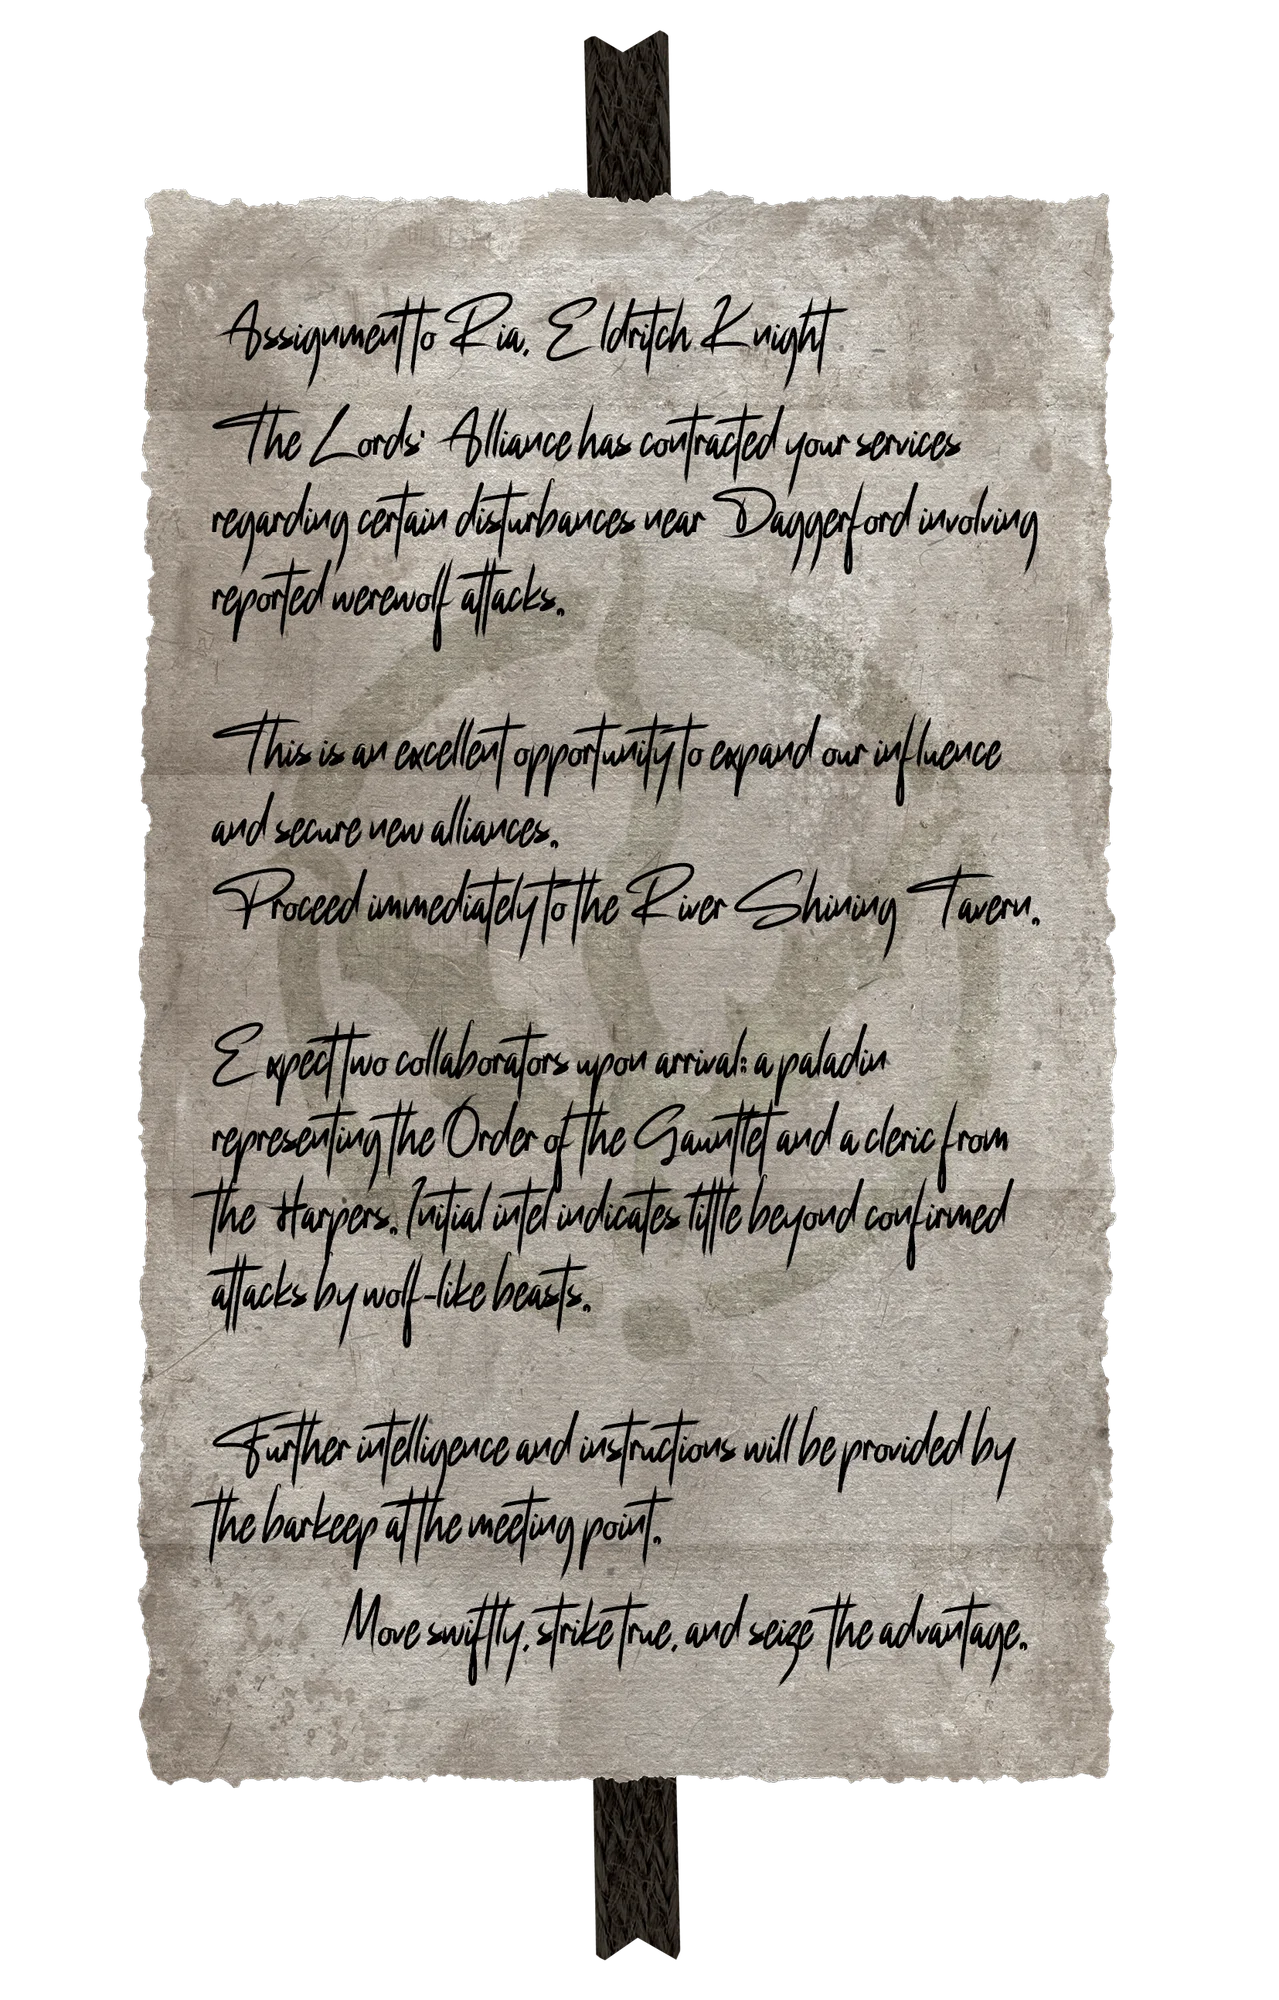 Assignment to Ria, Eldritch Knight
The Lords' Alliance has contracted your services
regarding certain disturbances near Daggerford involving
reported werewolf attacks.
This is an excellent opportunity to expand our influence
and secure new alliances.
Proceed immediately to the River Shining Tavern.
Expect two collaborators upon arrival: a paladin
representing the Order of the Gauntlet and a cleric from
the Harpers. Initial intel indicates little beyond confirmed
attacks by wolf-like beasts.
Further intelligence and instructions will be provided by
the barkeep at the meeting point.
Move swiftly, strike true, and seize the advantage.